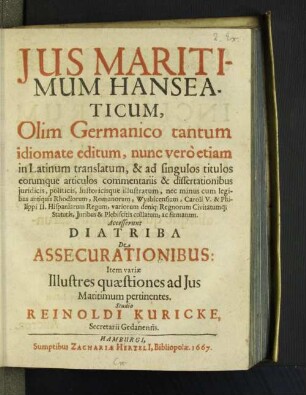 JUS MARITI-
MUM HANSEA-
TICUM,
Olim Germanico tantum
idiomate editum, nunc verò etiam
in Latinum translatum, & ad singulos titulos
eorumque articulos commentariis & dissertationibus
juridicis, politicis, historicisque illustratum, nec minus cum legi-
bus antiquis Rhodiorum, Romanorum, Wysbicensium, Caroli V. & Phi-
lippi II. Hispaniarum Regum, variorum deniq; Regnorum Civitatumq;
Statutis, Juribus & Plebiscitis collatum, ac firmatum.
Accesserunt
DIATRIBA
De
ASSECURATIONIBUS:
Item variæ
Illustres quæstiones ad Jus
Maritimum pertinentes.
Studio
REINOLDI KURICKE,
Secretarii Gedanensis.
HAMBURGI,
Sumptibus ZACHARIÆ HERTELI, Bibliopolæ. 1667.